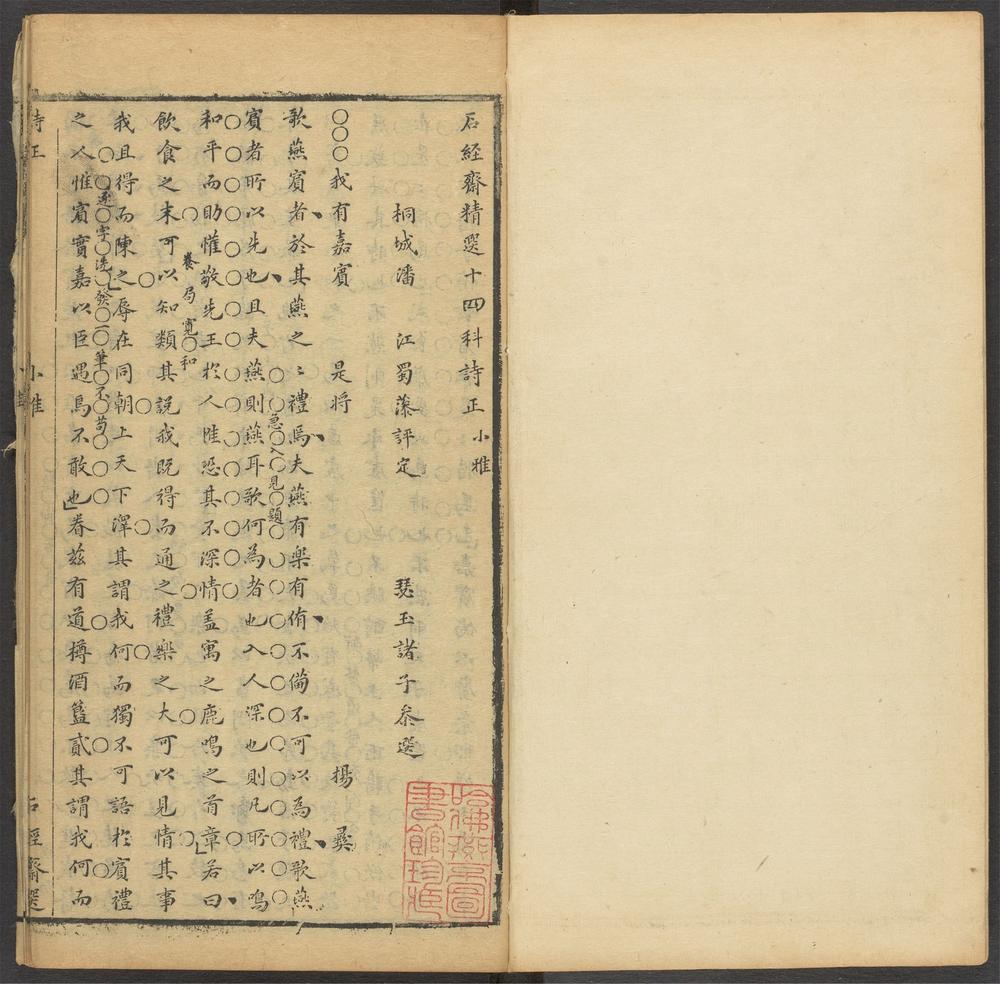 石經齋精選十四科詩正小雅
桐城潘 江蜀藻評定 瑟玉諸子叅選
○○○我有嘉賓 是將 揚彛
歌燕賓者於其燕之〻禮焉夫燕有樂有侑不僃不可以為禮歌燕
急入見題
賓者所以先也且夫燕則燕耳歌何為者也入人深也則凡所以鳴
和平而助懽敬先王扵人惟恐其不深情盖寓之鹿鳴之首章若曰
養局寬和
飲食之末可以知類其說我既得而通之禮樂之大可以見情其事
我且得而陳之辱在同朝上天下澤其謂我何而獨不可語扵賓禮
逐字洗發一筆不苟
之人惟賓實嘉以臣遇焉不敢也眷兹有道樽酒簋貳其謂我何而
詩正 小雅 石經齋選
哈佛燕京圖書館珍藏